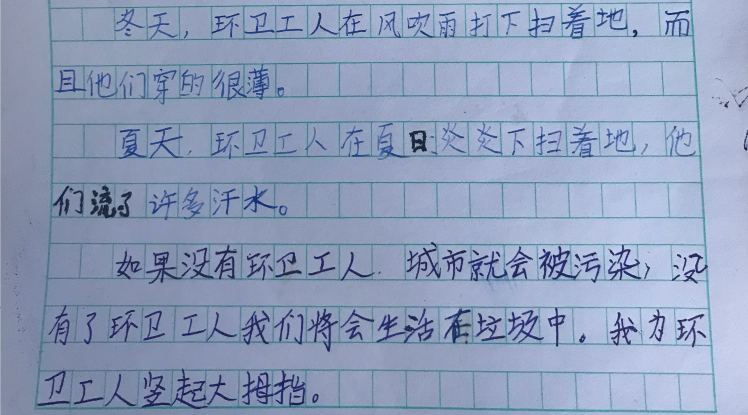 冬天，环卫工人在风吹雨打下扫着地，而
且他们穿的很薄。
夏天，环卫工人在夏日炎炎下扫着地，他
们流了许多汗水。
如果没有环卫工人，城市就会被污染，没
有了环卫工人我们将会生活在垃圾中。我为环
卫工人竖起大拇指。